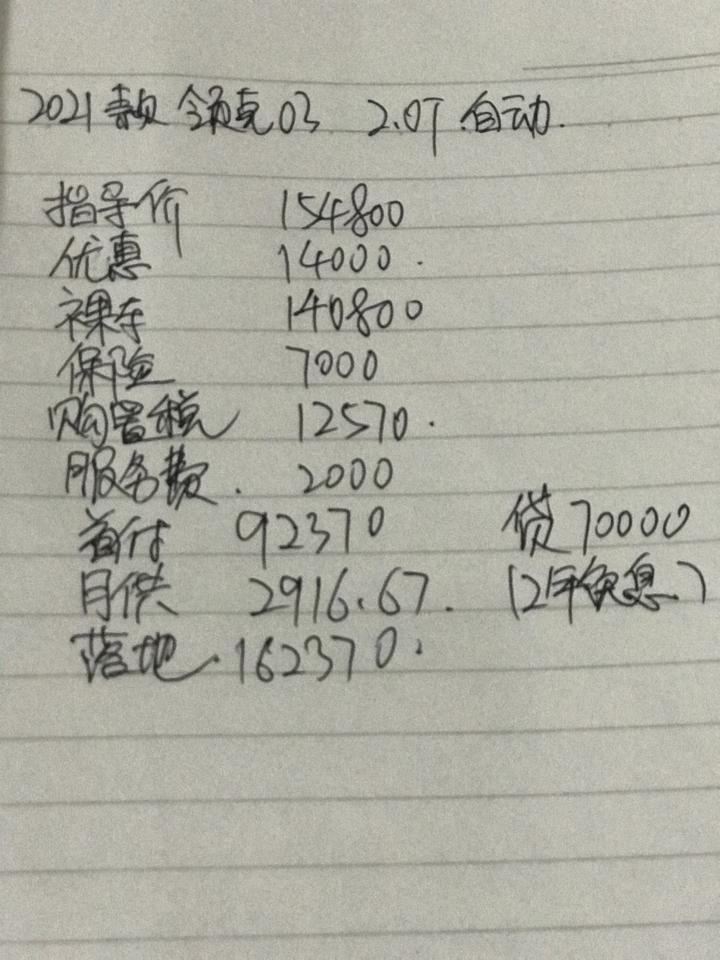 2021款 领克03 2.0T 自动.
指导价 154800
优惠 14000.
裸车 140800
保险 7000
购置税 12570.
服务费. 2000
首付 92370 贷70000
月供 2916.67. (2年免息)
落地. 162370.